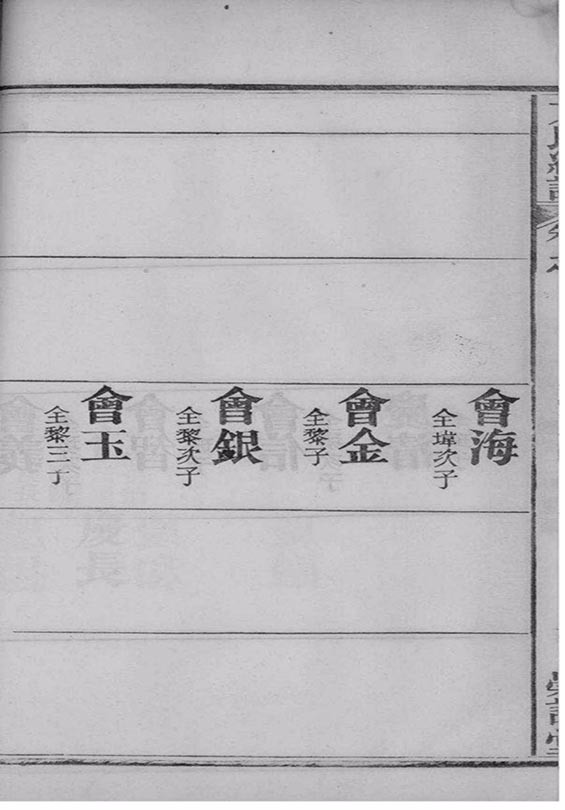 會海
全墇次子
會金
全黎子
會銀
全黎次子
會玉
全黎三子